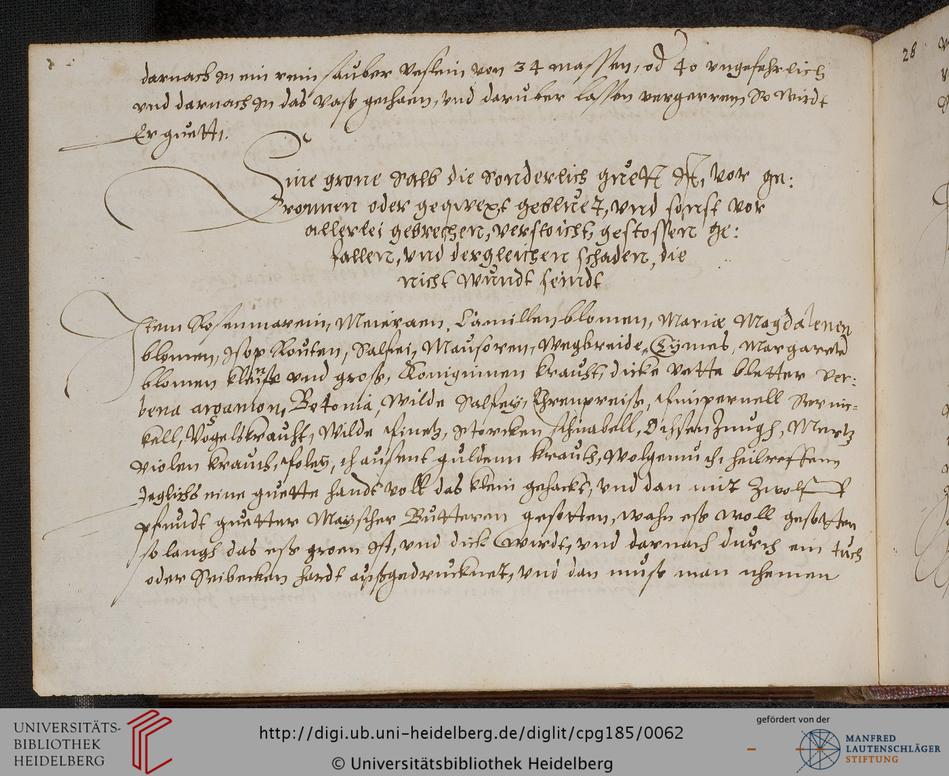 darnach in ein rein sauber vesslein von 34 massen, od 40 ungefehrlich
und darnach in das vass gethaen, und daruber lassen vergerren So wirdt
Er guett.
Eine grone Salb die Sonderlich guett ist, vor ge:
bronnen oder geqwext gebluet, und sonst vor
allerlei gebrechen, verstoicht, gestossen ge:
fallen, und dergleichen schaden, die
nicht wundt seindt
Item Rosenmarein, Meieraen, Camillen blomen, Mariæ Magdalenen
blomen, Isop Routen, Salfei, Mausoren, Wegbreide, Tÿmes, Margareta
blomen kleine und gross, Koniginnen krauht, dicke vette bletter Ver-
bena, Betonia, Wilde Salfeÿ, Ehrenpreiss, Pimpernell
kell, Vogelskrauht, Wilde, Storcken schnabell, Ochssen Zungh, Mertz
Violen krauth, Poleÿ, thausent gulden krauth, Wolgemuth,
Jeglichs eine guette handt voll das klein gehackt, und dan mit Zwolff
pfundt guetter Maÿscher Butteren gesotten, wahn ess woll gesotten
so langh das ess groen ist, und dick wirdt, und darnach durch ein tuch
oder Seibecken hardt aussgedrucknet, und dan muss man nhemen
28
UNIVERSITÄTS-
BIBLIOTHEK
HEIDELBERG
http://digi.ub.uni-heidelberg.de/diglit/cpg185/0062
© Universitätsbibliothek Heidelberg
gefördert von der
MANFRED
LAUTENSCHLÄGER
STIFTUNG